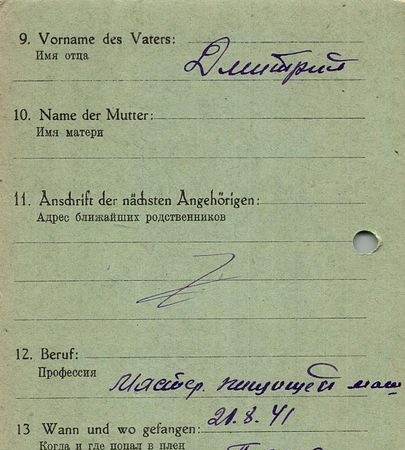 9. Vorname des Vaters:
Имя отца
Дмитрий
10. Name der Mutter:
Имя матери
11. Anschrift der nächsten Angehörigen:
Адрес ближайших родственников
12. Beruf:
Профессия
Мастер пишущей маш
13 Wann und wo gefangen: 21.8.41
Когда и где попал в плен